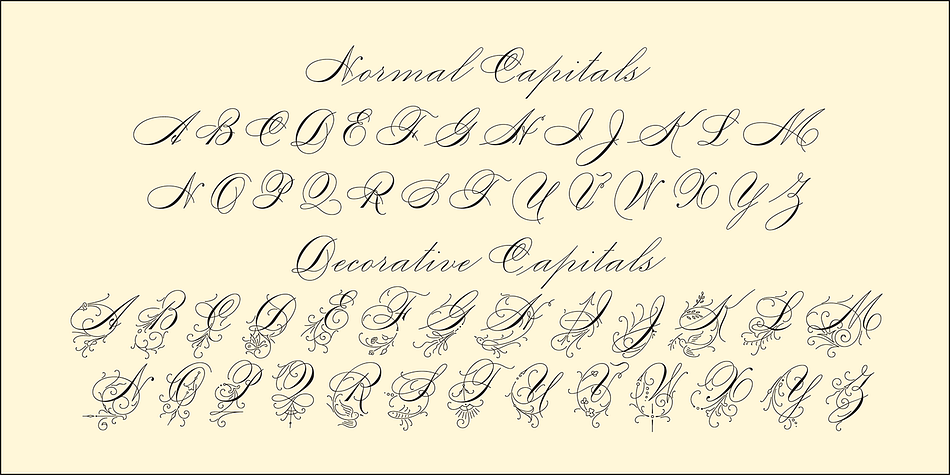 Normal Capitals
A B C D E F G H I J K L M
N O P Q R S T U V W X Y Z
Decorative Capitals
A B C D E F G H I J K L M
N O P Q R S T U V W X Y Z